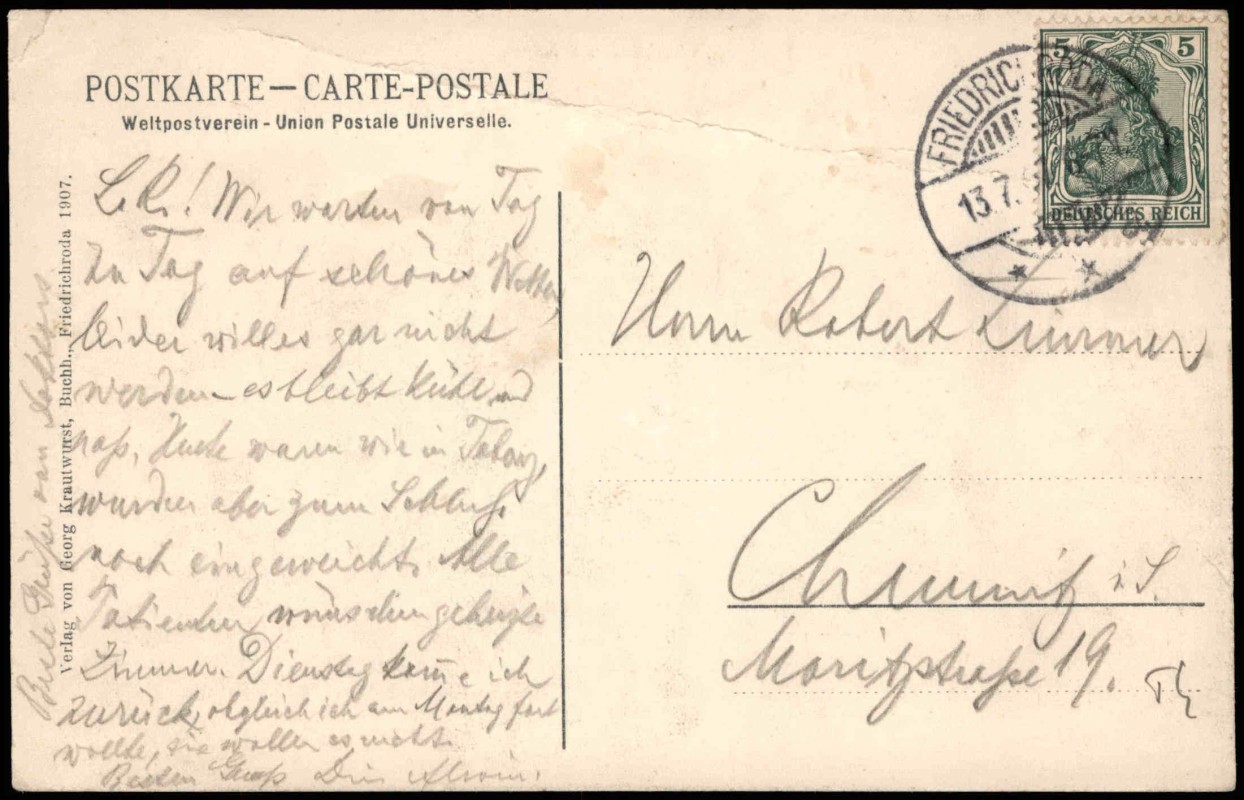 POSTKARTE — CARTE-POSTALE
Weltpostverein - Union Postale Universelle.
L. R.! Wir warten von Tag
zu Tag auf schönes Wetter,
leider will es gar nicht
werden – es bleibt kühl und
naß. Heute waren wir in Tabarz,
wurden aber zum Schluß
noch eingeweicht. Alle
Patienten wünschen geheizte
Zimmer. Dienstag komme ich
zurück, obgleich ich am Montag fort
wollte, sie wollen es nicht.
Besten Gruß Dein Alwin.
Viele Grüße von
Verlag von Georg Krautwurst, Buchh., Friedrichroda 1907.
FRIEDRICHRODA
13.7.
5 5
DEUTSCHES REICH
Herrn Robert
Chemnitz i. S.
Moritzstraße 19.